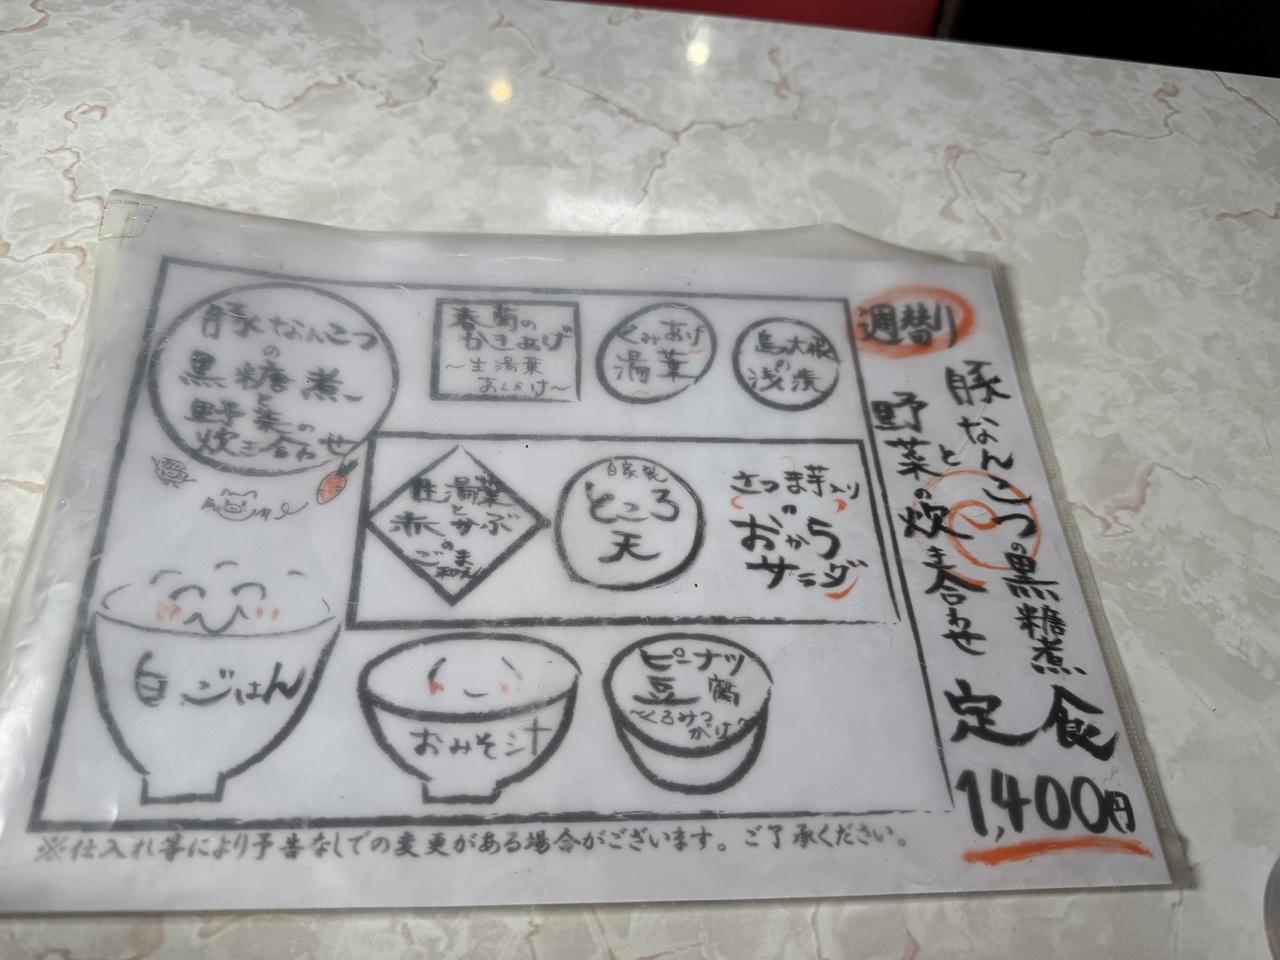 週替り
豚なんこつの黒糖煮
と野菜の炊き合わせ
定食
1,400円
豚なんこつ
の
黒糖煮
と
野菜の
炊き合わせ
春菊の
かきあげ
～生湯葉
あんかけ～
くみあげ
湯葉
大根
の
浅漬
生湯葉
と
赤かぶ
の
ごま
和え
自家製
ところ
天
さつま芋入り
の
おから
サラダ
白ごはん
おみそ汁
ピーナツ
豆腐
～くろみつ
がけ～
※仕入れ等により予告なしでの変更がある場合がございます。ご了承ください。